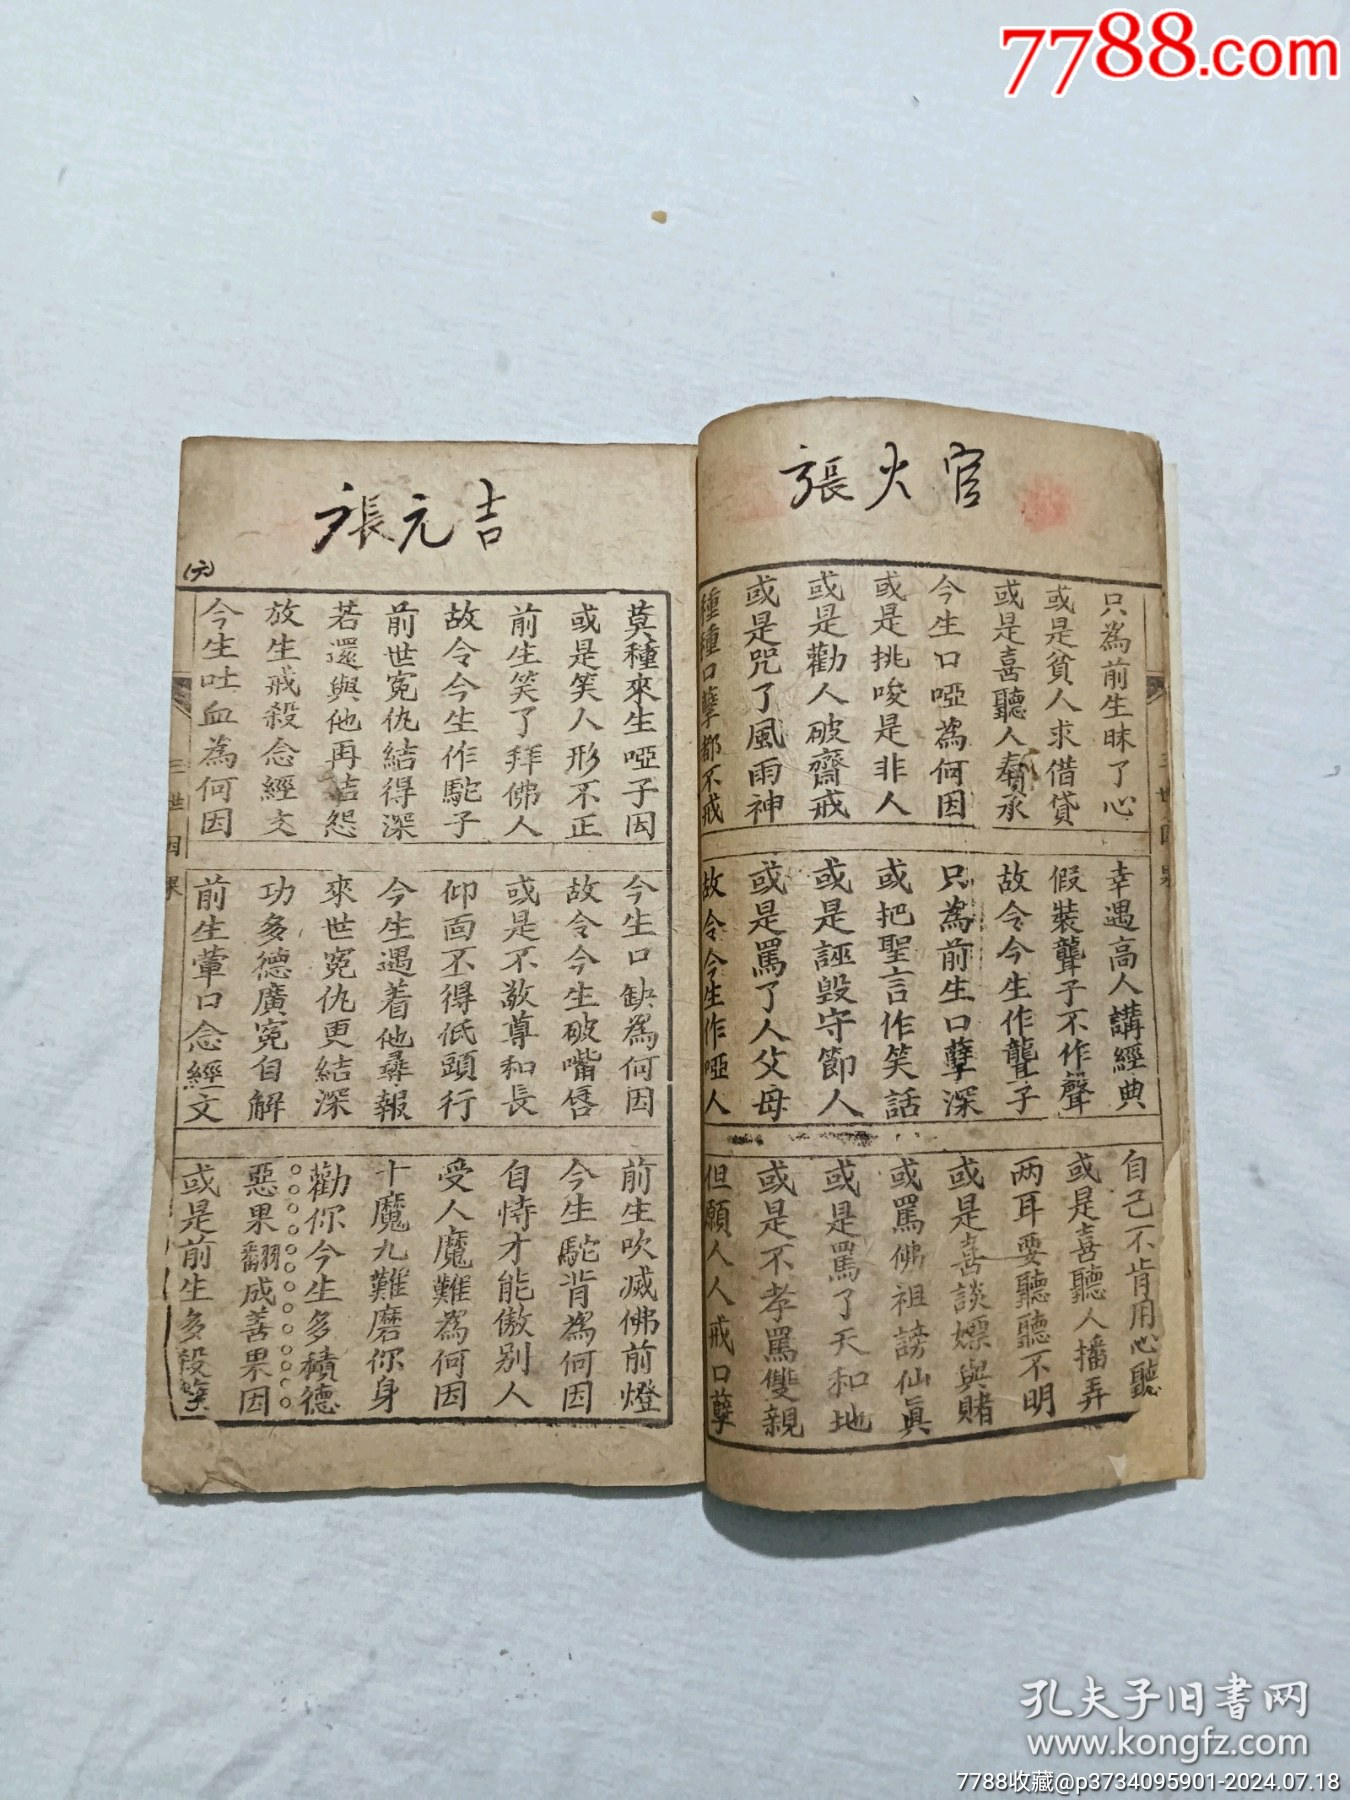 7788.com
張火官
只為前生昧了心
幸遇高人講經典
自己不肯用心聽
或是貧人求借貸
假裝聾子不作聲
或是喜聽人播弄
或是喜聽人奉承
故令今生作聾子
两耳要聽聽不明
今生口啞為何因
只為前生口孽深
或是喜談嫖與賭
或是挑唆是非人
或把聖言作笑話
或罵佛祖謗仙眞
或是勸人破齋戒
或是誣毀守節人
或是罵了天和地
或是咒了風雨神
或是罵了人父母
或是不孝罵雙親
種種口孽都不戒
故令今生作啞人
但願人人戒口孽
張元吉
莫種來生啞子因
今生口缺為何因
前生吹滅佛前燈
或是笑人形不正
故令今生破嘴唇
今生駝背為何因
前生笑了拜佛人
或是不敬尊和長
自恃才能傲别人
故令今生作駝子
仰面不得低頭行
受人魔難為何因
前世冤仇結得深
今生遇着他尋報
十魔九難磨你身
若還與他再結怨
來世冤仇更結深
勸你今生多積德
放生戒殺念經文
功多德廣冤自解
惡果翻成善果因
今生吐血為何因
前生葷口念經文
或是前生多殺生
(六)
三世因果
孔夫子旧书网
www.kongfz.com
7788收藏@p3734095901-2024.07.18